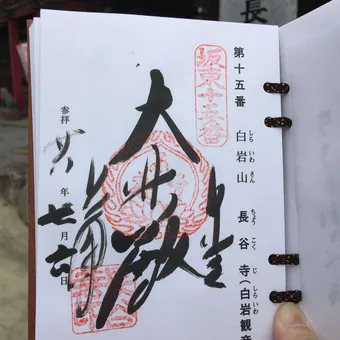 長
第十五番 白岩山 長谷寺(白岩観音
しら いわ さん ちょう こく じ しらいわ
坂東十五番
大悲殿
参拝 廿八年七月六日